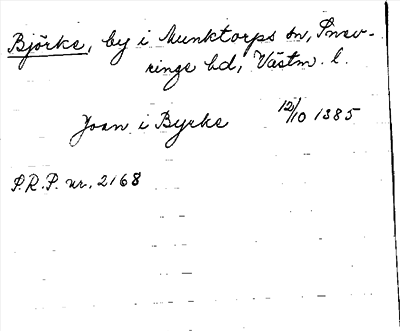 Björke, by i Munktorps sn, Snev-
ringe hd, Västm. l.
Joan i Byrke 12/10 1385
S.R.P. nr. 2168